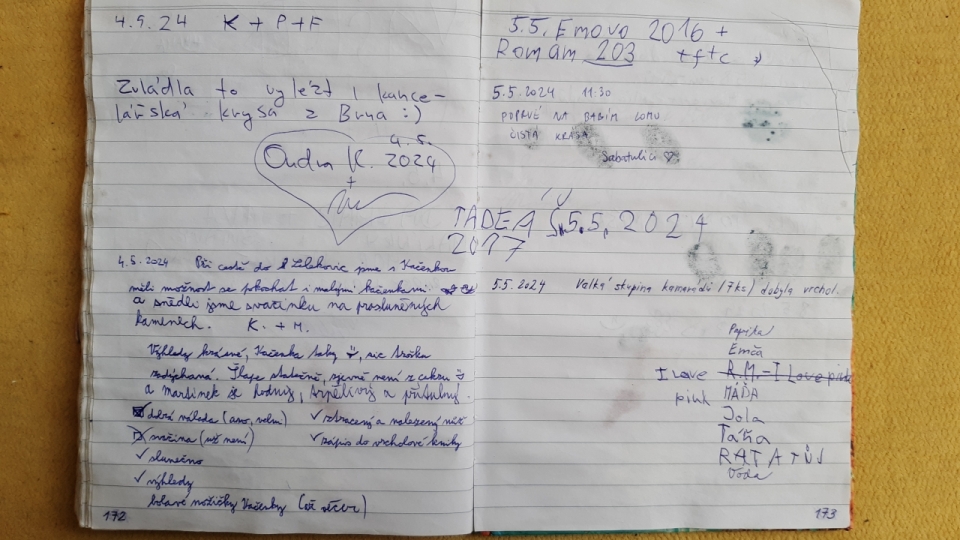 4.5.24 K + P + F
Zvládla to vylézt i kance-
lářská krysa z Brna :)
4.5.
Ondra K. 2024
+
4.5.2024 Při cestě do jsme s Kačenkou
měli možnost se pokochat i malými kačenkami
a snědli jsme svačinku na prosluněných
kamenech. K. + M.
Výhledy krásné, Kačenka taky, sic trošku
zadýchaná. Šlape statečně, zjevně není z cukru
a Martínek je hodný, trpělivý a přítulný.
dobrá nálada (ano, velmi) ✓ ztracený a nalezený
svačina (už není) ✓ zápis do vrcholové knihy
✓ slunečno
✓ výhledy
bolavé nožičky Kačenky (až večer)
172
5.5. Emova 2016 +
Roman 203 +f+c
5.5.2024 11:30
POPRVÉ NA BABÍM LOMU.
ČISTÁ KRÁSA
Sabatulici ♡
TADEÁ Š 5.5. 2024
2017
5.5.2024 Velká skupina kamarádů (7ks) dobyla vrchol.
Paprika
Emča
I Love R.M.-I Love pink
pink MÁĎA
Jola
Táňa
RATATŮJ
Voda
173